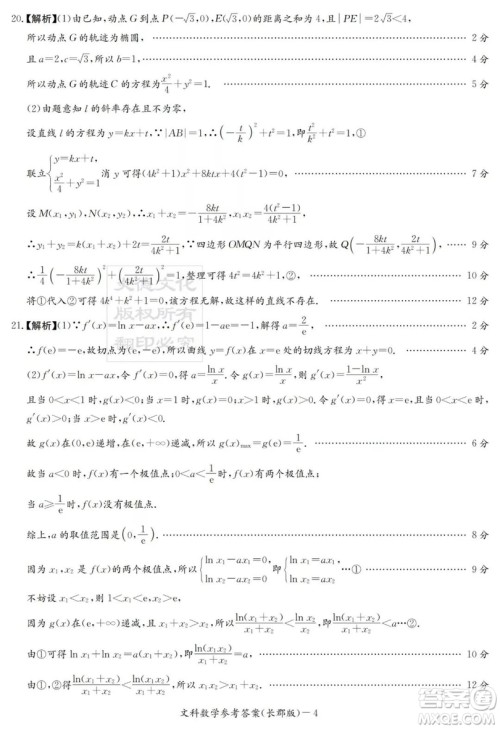 20.【解析】(1)由已知，动点G到点P(-√3,0)，E(√3,0)的距离之和为4，且|PE|=2√3<4，
所以动点G的轨迹为椭圆， 2分
所以动点G的轨迹C的方程为x²/4+y²=1. 5分
(2)由题意知l的斜率存在且不为零，
设直线l的方程为y=kx+t，∵|AB|=1，∴(-t/k)²+t²=1，① 6分
联立{y=kx+t, x²/4+y²=1 消y可得(4k²+1)x²+8ktx+4(t²-1)=0， 7分
设M(x₁,y₁)，N(x₂,y₂)，则x₁+x₂=-8kt/(1+4k²)，x₁x₂=4(t²-1)/(1+4k²)，
∴y₁+y₂=k(x₁+x₂)+2t=2t/(4k²+1)，∵四边形OMQN为平行四边形，故Q(-8kt/(1+4k²), 2t/(4k²+1))， 9分
∴1/4(-8kt/(1+4k²))²+(2t/(4k²+1))²=1，整理可得4t²=4k²+1，② 10分
将①代入②可得4k⁴+k²+1=0，该方程无解，故这样的直线不存在. 12分
21.【解析】(1)∵f′(x)=ln x-ax，∴f′(e)=1-ae=-1，解得a=2/e， 2分
∴f(e)=-e，故切点为(e,-e)，所以曲线y=f(x)在x=e处的切线方程为x+y=0. 4分
(2)f′(x)=ln x-ax，令f′(x)=0，得a=ln x/x. 令g(x)=ln x/x，则g′(x)=(1-ln x)/x²，
且当0<x<1时，g(x)<0；当x=1时，g(x)=0；x>1时，g(x)>0. 令g′(x)=0，得x=e，且当0<x<e时，g′(x)>0；当x>e时，
g′(x)<0. 6分
故g(x)在(0,e)递增，在(e,+∞)递减，所以g(x)max=g(e)=1/e.
故当a<0时，f(x)有一个极值点；当0<a<1/e时，f(x)有两个极值点；
当a≥1/e时，f(x)没有极值点.
综上，a的取值范围是(0,1/e). 8分
因为x₁，x₂是f(x)的两个极值点，所以{ln x₁-ax₁=0, ln x₂-ax₂=0，即{ln x₁=ax₁, ln x₂=ax₂…① 9分
不妨设x₁<x₂，则1<x₁<e，x₂>e，
因为g(x)在(e,+∞)递减，且x₁+x₂>x₂，所以ln(x₁+x₂)/(x₁+x₂)<ln x₂/x₂，即ln(x₁+x₂)/(x₁+x₂)<a…② 10分
由①可得ln x₁+ln x₂=a(x₁+x₂)，即a=ln(x₁x₂)/(x₁+x₂)，
由①，②得ln(x₁+x₂)/(x₁+x₂)<ln(x₁x₂)/(x₁+x₂)，所以x₁x₂>x₁+x₂. 12分
文科数学参考答案(长郡版)-4
版权所有
翻印必究